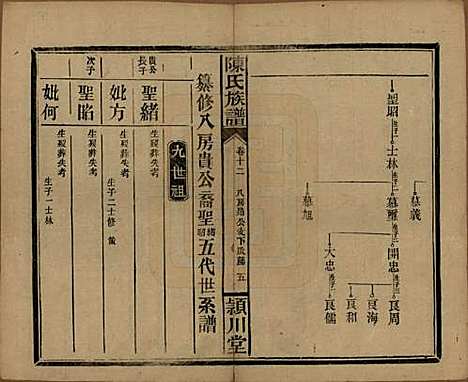 聖昭
士林
慕璽
慕義
慕旭
開忠
大忠
良周
良海
良和
良儒
陳氏族譜
卷十二
五
潁川堂
纂修八房貴公裔聖緒昭五代世系譜
九世祖
貴公長子
聖緒
生歿葬失考
妣方
生歿葬失考
生子二士修 儀
次子
聖昭
生歿葬失考
妣何
生歿葬失考
生子一士林